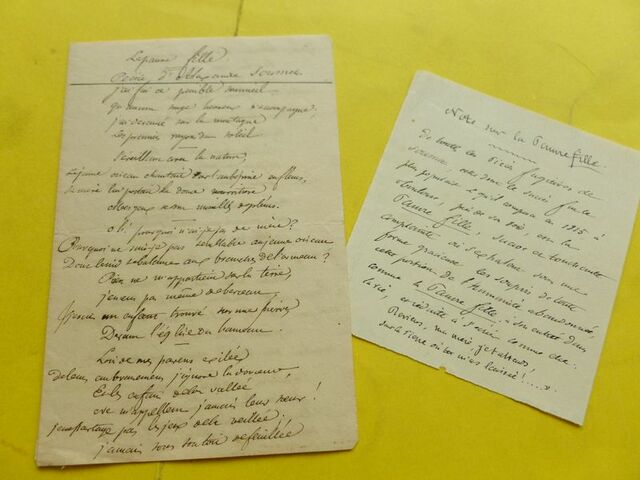 La pauvre fille
Poésie d'Alexandre Soumet
j'ai fui ce pénible sommeil
qu'aucun songe heureux n'accompagne,
j'ai devancé sur la montagne
Les premiers rayons du soleil
S'éveillant avec la nature,
Le jeune oiseau chantait sur l'aubépine en fleurs,
Sa mère lui portait la douce nourriture
Mes yeux se sont mouillés de pleurs.
Oh! pourquoi n'ai-je pas de mère?
Pourquoi ne suis-je pas semblable au jeune oiseau
Dont le nid se balance aux branches de l'ormeau?
Rien ne m'appartient sur la terre,
je n'eus pas même de berceau,
un enfant trouvé sur une pierre
Devant l'église du hameau.
Loin de mes parens exilée
de leurs embrassemens j'ignore la douceur,
Et les enfans de la vallée
Ne m'appellent jamais leur sœur!
je ne partage pas les jeux de la veillée;
jamais sous son toit de feuillée
Note sur la Pauvre fille
De toutes les Poésies fugitives de
Soumet,
plus populaire qu'il composa en 1815
Pauvre fille, si touchante
forme gracieuse les soupirs de toute
cette portion de l'humanité abandonnée,
comme la Pauvre fille, à son entrée dans
la vie, et réduite à s'écrier comme elle:
Reviens, ma mère, je t'attends
sur la pierre où tu m'as laissée!.....